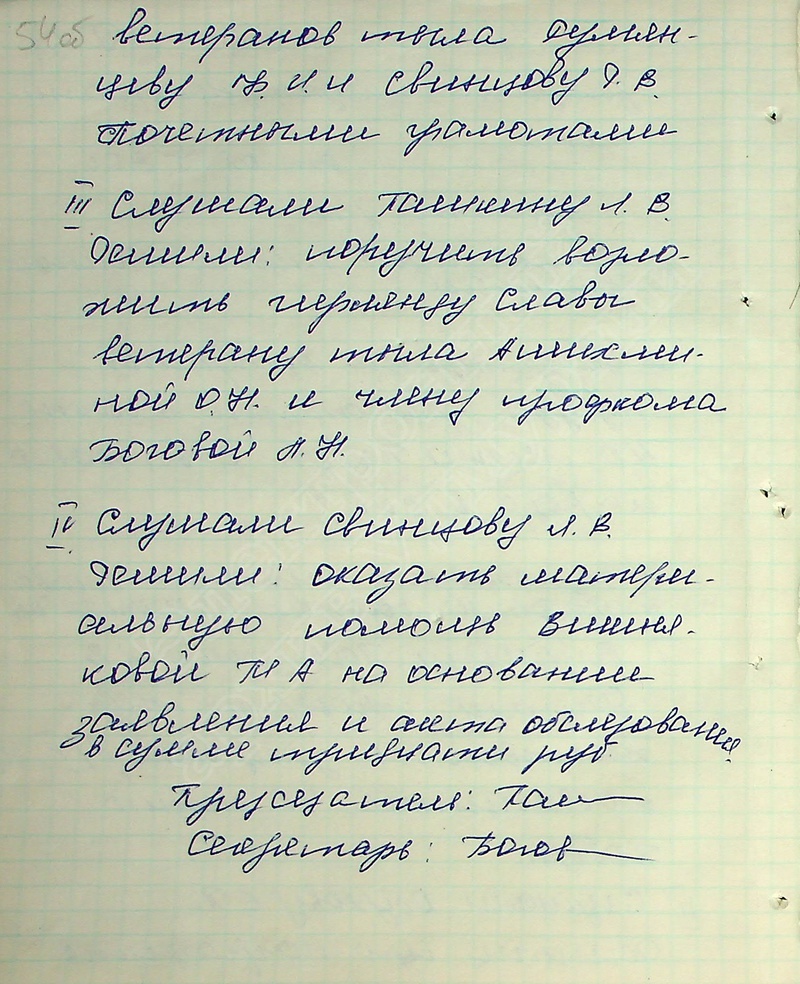 54об
ветеранов тыла Румян-
цеву Ф. И. и Свинцову Г. В.
Почетными грамотами
III Слушали Пашкину Л. В.
Решили: поручить возло-
жить гирлянду Славы
ветерану тыла Анихли-
ной О.Н. и члену профкома
Боговой А.Н.
IV Слушали Свинцову Л. В.
Решили: оказать матери-
альную помощь Вишня-
ковой М А на основании
заявления и акта обследования
в сумме тридцати руб
Председатель: Паш
Секретарь: Богов